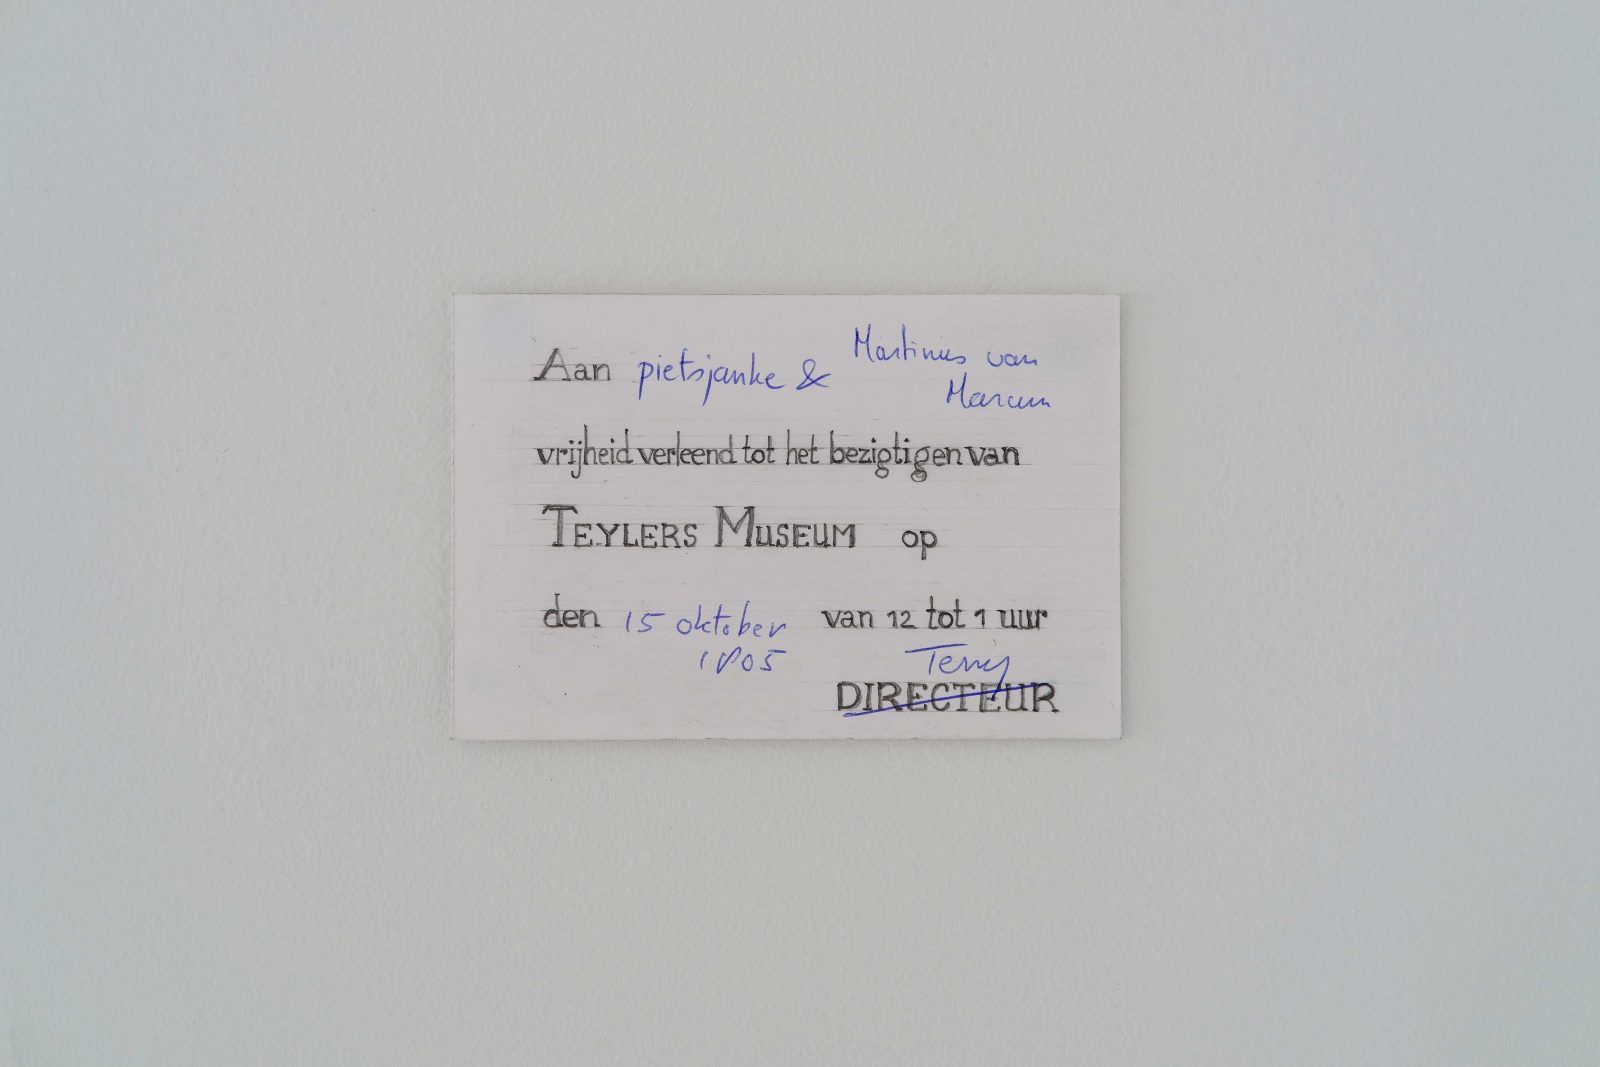 Aan pietsjanke & Martinus van
Marum
vrijheid verleend tot het bezigtigen van
TEYLERS MUSEUM op
den 15 oktober van 12 tot 1 uur
1805
DIRECTEUR